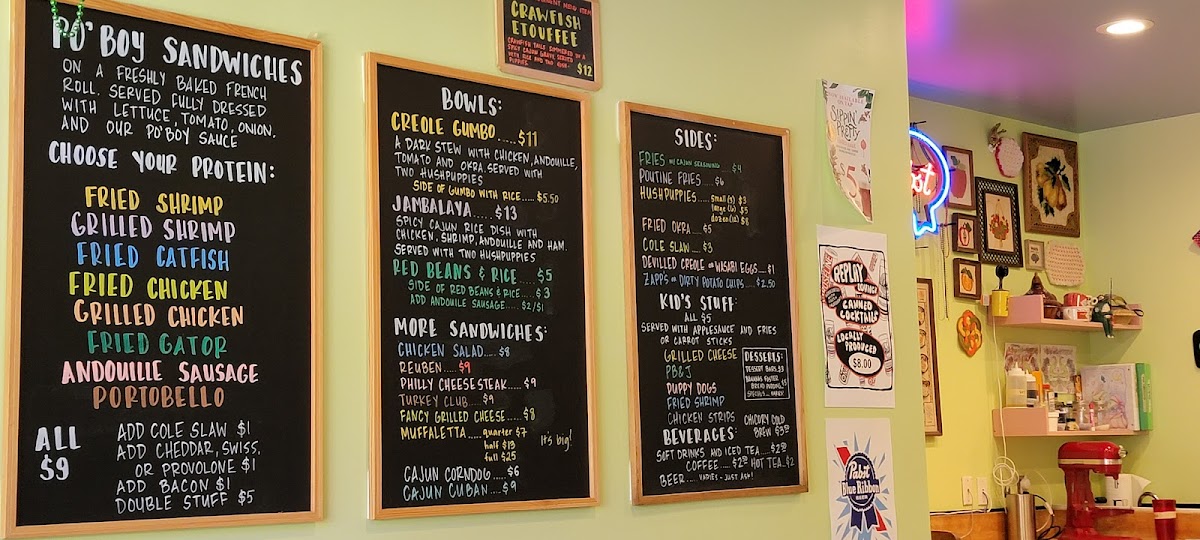 PO' BOY SANDWICHES
ON A FRESHLY BAKED FRENCH
ROLL. SERVED FULLY DRESSED
WITH LETTUCE, TOMATO, ONION,
AND OUR PO'BOY SAUCE
CHOOSE YOUR PROTEIN:
FRIED SHRIMP
GRILLED SHRIMP
FRIED CATFISH
FRIED CHICKEN
GRILLED CHICKEN
FRIED GATOR
ANDOUILLE SAUSAGE
PORTOBELLO
ALL
$9
ADD COLE SLAW $1
ADD CHEDDAR, SWISS,
OR PROVOLONE $1
ADD BACON $1
DOUBLE STUFF $5
BOWLS:
CREOLE GUMBO......$11
A DARK STEW WITH CHICKEN, ANDOUILLE,
TOMATO AND OKRA. SERVED WITH
TWO HUSHPUPPIES
SIDE OF GUMBO WITH RICE.....$5.50
JAMBALAYA.....$13
SPICY CAJUN RICE DISH WITH
CHICKEN, SHRIMP, ANDOUILLE AND HAM.
SERVED WITH TWO HUSHPUPPIES
RED BEANS & RICE....$5
SIDE OF RED BEANS & RICE.....$3
ADD ANDOUILLE SAUSAGE.....$2/$1
MORE SANDWICHES:
CHICKEN SALAD....$8
REUBEN.....$9
PHILLY CHEESESTEAK.....$9
TURKEY CLUB.....$9
FANCY GRILLED CHEESE.....$8
MUFFALETTA.....quarter $7
half $13
full $25
It's big!
CAJUN CORNDOG.....$6
CAJUN CUBAN.....$9
CRAWFISH
ETOUFFEE
CRAWFISH TAILS SIMMERED IN A
SPICY CAJUN GRAVY. SERVED
WITH RICE AND TWO HUSH-
PUPPIES
$12
SIDES:
FRIES w/ CAJUN SEASONING.....$4
POUTINE FRIES.....$6
HUSHPUPPIES.....small (3) $3
large (6) $5
dozen (12) $8
FRIED OKRA.....$5
COLE SLAW.....$3
DEVILLED CREOLE or WASABI EGGS.....$1
ZAPP'S or DIRTY POTATO CHIPS.....$2.50
KID'S STUFF:
ALL $5
SERVED WITH APPLESAUCE AND FRIES
OR CARROT STICKS
GRILLED CHEESE
PB&J
PUPPY DOGS
FRIED SHRIMP
CHICKEN STRIPS
DESSERTS:
DESSERT BARS..$3
BANANAS FOSTER
BREAD PUDDING..$5
CHICORY COLD
BREW $3.50
BEVERAGES:
SOFT DRINKS AND ICED TEA.....$2.50
COFFEE.....$2.50 HOT TEA..$2
BEER.....VARIES - JUST ASK!
SIPPIN'
PRETTY
$5
REPLAY
CANNED
COCKTAILS
LOCALLY
PRODUCED
$8.00
Pabst
Blue Ribbon
BEER